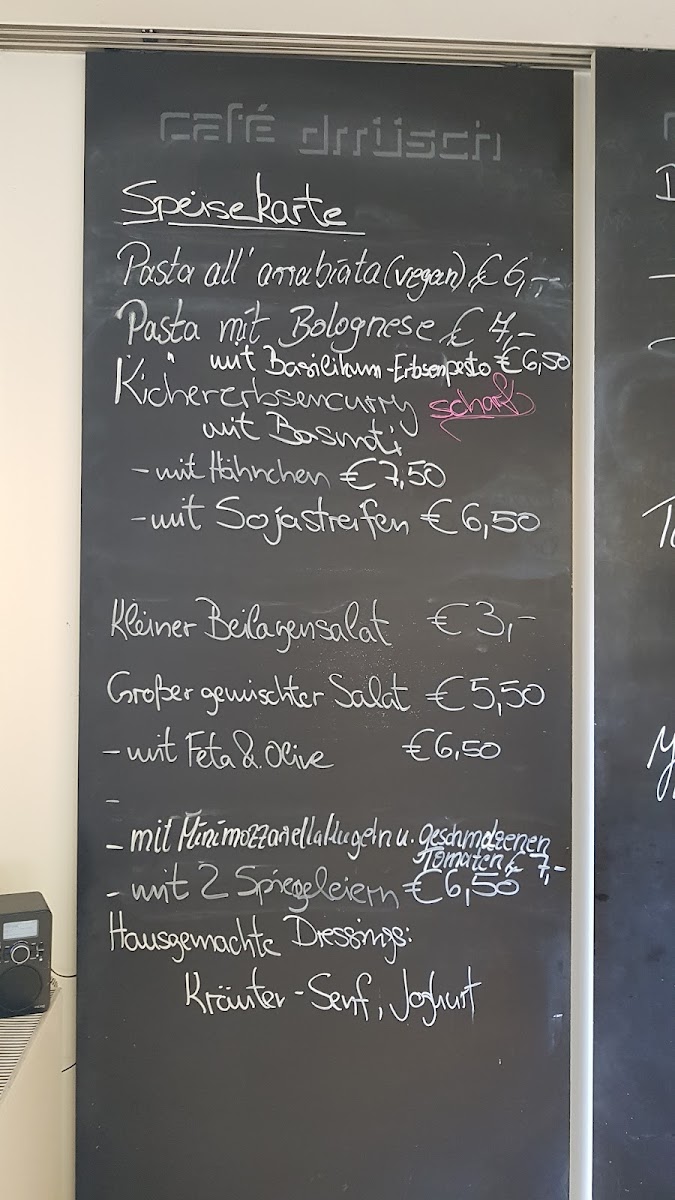 café drrüsch
Speisekarte
Pasta all'arrabiata (vegan) € 6,-
Pasta mit Bolognese € 7,-
" mit Basilikum-Erbsenpesto € 6,50
Kichererbsencurry scharf
mit Basmati
- mit Hähnchen € 7,50
- mit Sojastreifen € 6,50
Kleiner Beilagensalat € 3,-
Großer gemischter Salat € 5,50
- mit Feta & Olive € 6,50
-
- mit Minimozzarellakugeln u. geschmolzenen
Tomaten € 7,-
- mit 2 Spiegeleiern € 6,50
Hausgemachte Dressings:
Kräuter-Senf, Joghurt